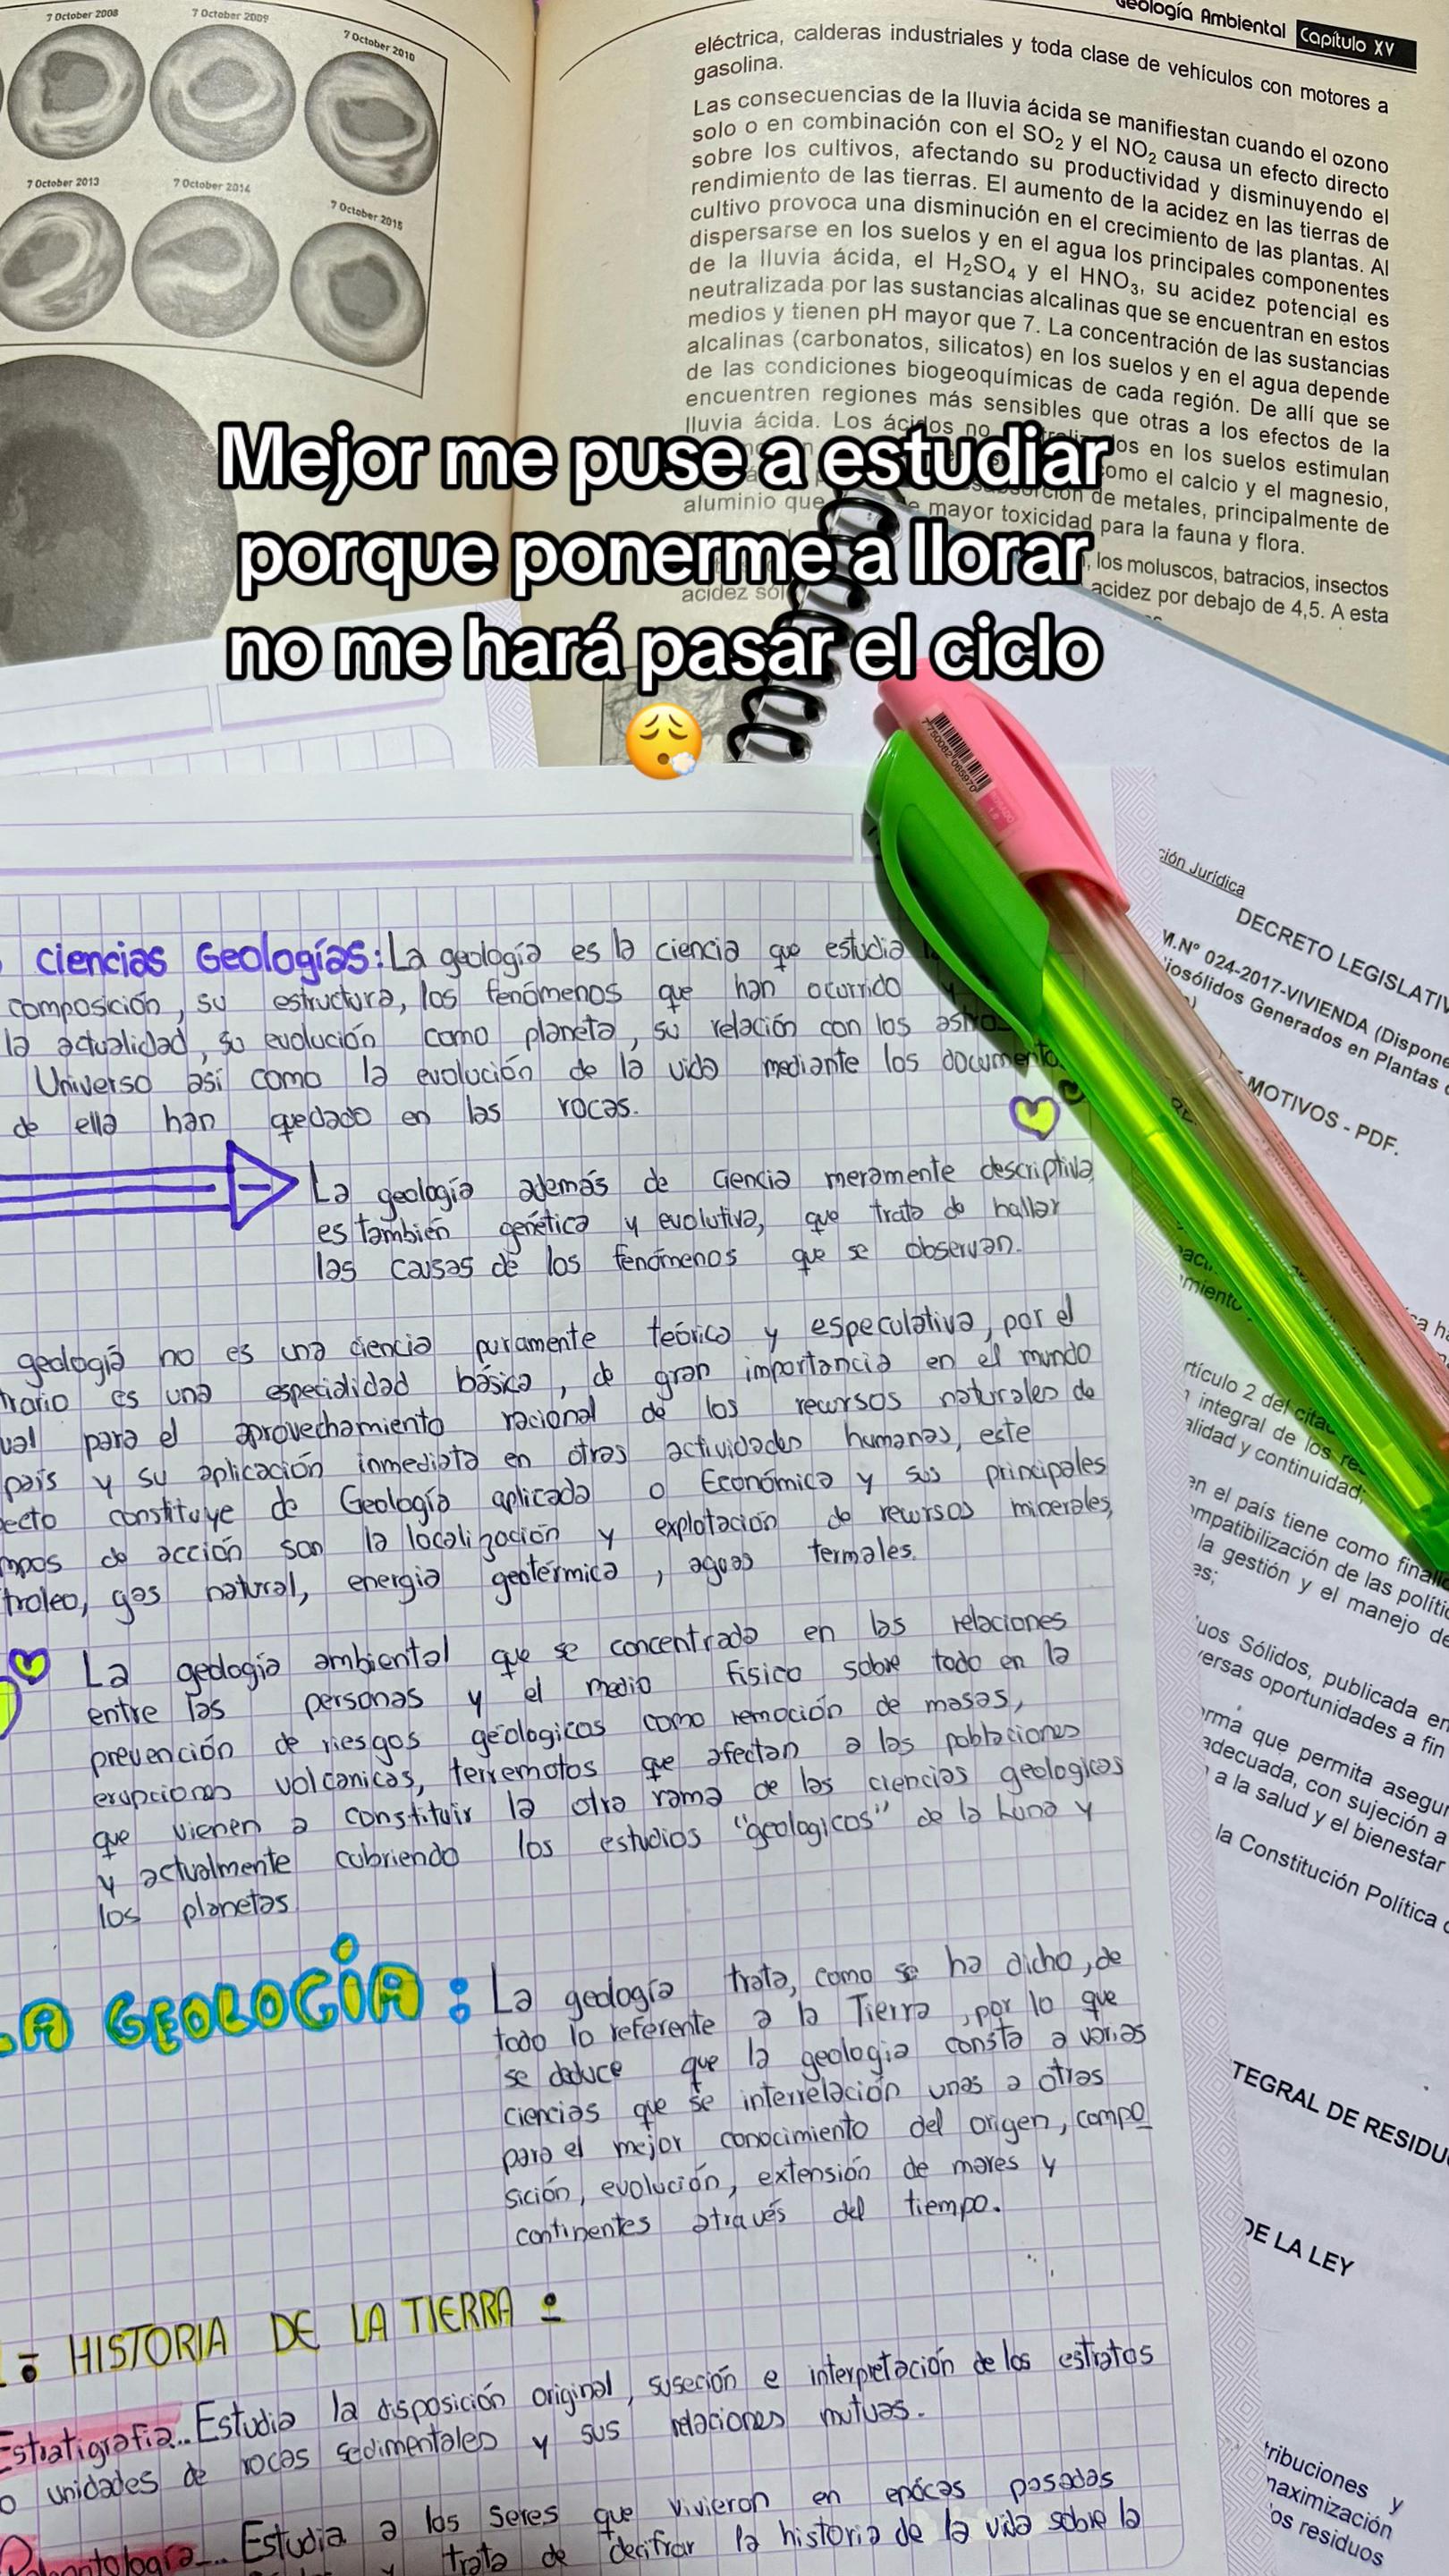 7 October 2008
7 October 2009
7 October 2010
7 October 2013
7 October 2014
7 October 2015
Geología Ambiental Capítulo XV
eléctrica, calderas industriales y toda clase de vehículos con motores a
gasolina.
Las consecuencias de la lluvia ácida se manifiestan cuando el ozono
solo o en combinación con el SO₂ y el NO₂ causa un efecto directo
sobre los cultivos, afectando su productividad y disminuyendo el
rendimiento de las tierras. El aumento de la acidez en las tierras de
cultivo provoca una disminución en el crecimiento de las plantas. Al
dispersarse en los suelos y en el agua los principales componentes
de la lluvia ácida, el H₂SO₄ y el HNO₃, su acidez potencial es
neutralizada por las sustancias alcalinas que se encuentran en estos
medios y tienen pH mayor que 7. La concentración de las sustancias
alcalinas (carbonatos, silicatos) en los suelos y en el agua depende
de las condiciones biogeoquímicas de cada región. De allí que se
encuentren regiones más sensibles que otras a los efectos de la
lluvia ácida. Los ácidos no en los suelos estimulan
como el calcio y el magnesio,
de metales, principalmente de
aluminio que mayor toxicidad para la fauna y flora.
los moluscos, batracios, insectos
acidez acidez por debajo de 4,5. A esta
Mejor me puse a estudiar
porque ponerme a llorar
no me hará pasar el ciclo
😮‍💨
7750082065970
Ciencias Geologías: La geología es la ciencia que estudia
composición, su estructura, los fenómenos que han ocurrido y
la actualidad, su evolución como planeta, su relación con los astros
Universo así como la evolución de la vida mediante los documento
de ella han quedado en las rocas.
La geología además de ciencia meramente descriptiva
es también genética y evolutiva, que trata de hallar
las causas de los fenómenos que se observan.
geología no es una ciencia puramente teórica y especulativa, por el
trario es una especialidad básica, de gran importancia en el mundo
ual para el aprovechamiento racional de los recursos naturales de
país y su aplicación inmediata en otras actividades humanas, este
ecto constituye de Geología aplicada o Económica y sus principales
mpos de acción son la localización y explotación de recursos minerales,
troleo, gas natural, energía geotérmica, aguas termales.
La geología ambiental que se concentrada en las relaciones
entre las personas y el medio físico sobre todo en la
prevención de riesgos geológicos como remoción de masas,
erupciones volcanicas, terremotos que afectan a las poblaciones
que vienen a constituir la otra rama de las ciencias geologicas
y actualmente cubriendo los estudios "geologicos" de la luna y
los planetas
LA GEOLOGÍA: La geología trata, como se ha dicho, de
todo lo referente a la Tierra, por lo que
se deduce que la geología consta a varias
ciencias que se interrelación unas a otras
para el mejor conocimiento del origen, compo
sición, evolución, extensión de mares y
continentes através del tiempo.
HISTORIA DE LA TIERRA:
Estratigrafía... Estudia la disposición original, suseción e interpretación de los estratos
o unidades de rocas sedimentales y sus relaciones mutuas.
Paleontología... Estudia a los seres que vivieron en epócas pasadas
y trata de decifrar la historia de la vida sobre la
ción Jurídica
DECRETO LEGISLATIV
M.N° 024-2017-VIVIENDA (Dispone
iosólidos Generados en Plantas
MOTIVOS - PDF.
rtículo 2 del citad
integral de los re
alidad y continuidad;
en el país tiene como finalid
ompatibilización de las polític
la gestión y el manejo de
es;
uos Sólidos, publicada en
versas oportunidades a fin
rma que permita asegur
adecuada, con sujeción a
a la salud y el bienestar
la Constitución Política
TEGRAL DE RESIDU
DE LA LEY
tribuciones y
maximización
os residuos